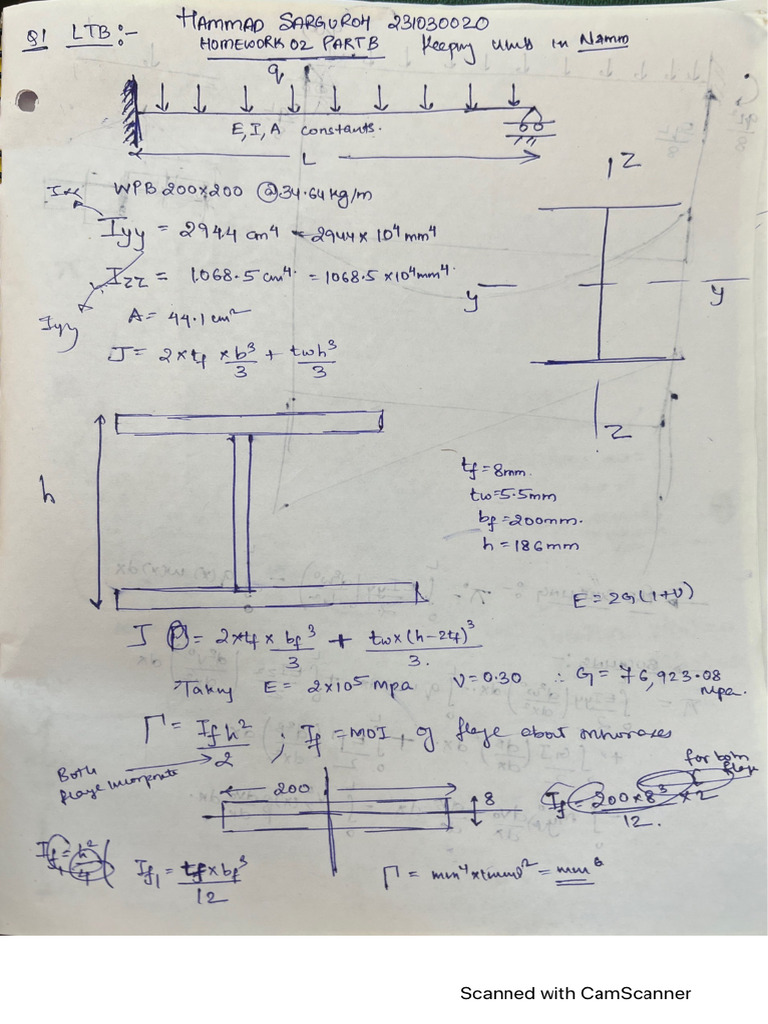 Q1 LTB:- HAMMAD SARGUROH 231030020
HOMEWORK 02 PART B Keeping units in N&mm
q
E, I, A constants.
L
WPB 200x200 @34.64 kg/m
Ixx
Iyy = 2944 cm⁴ = 2944 x 10⁴ mm⁴
Izz = 1068.5 cm⁴ = 1068.5 x10⁴ mm⁴
Iyy
A = 44.1 cm²
J = 2 x tf x b³/3 + twh³/3
Z
y y
Z
h
tf = 8mm.
tw = 5.5mm
bf = 200mm.
h = 186mm
E = 2G(1+ν)
J = 2 x tf x bf³/3 + tw x (h-2tf)³/3.
Taking E = 2x10⁵ mpa ν = 0.30 ∴ G = 76,923.08 mpa.
Γ = If h²/2 ; If = MOI, of flange about minor axes
Both flange incorporate
for both flange
200
8
If = 200 x 8³/12. x 2
If₁ = h²/4
If₁ = tf x bf³/12
Γ = mm⁴ x (mm)² = mm⁶
Scanned with CamScanner